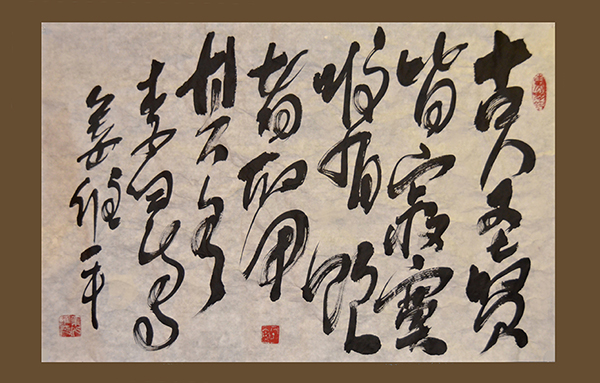 古人圣贤
皆寂寞
惟有饮
者留
其名
李白诗
姜维平